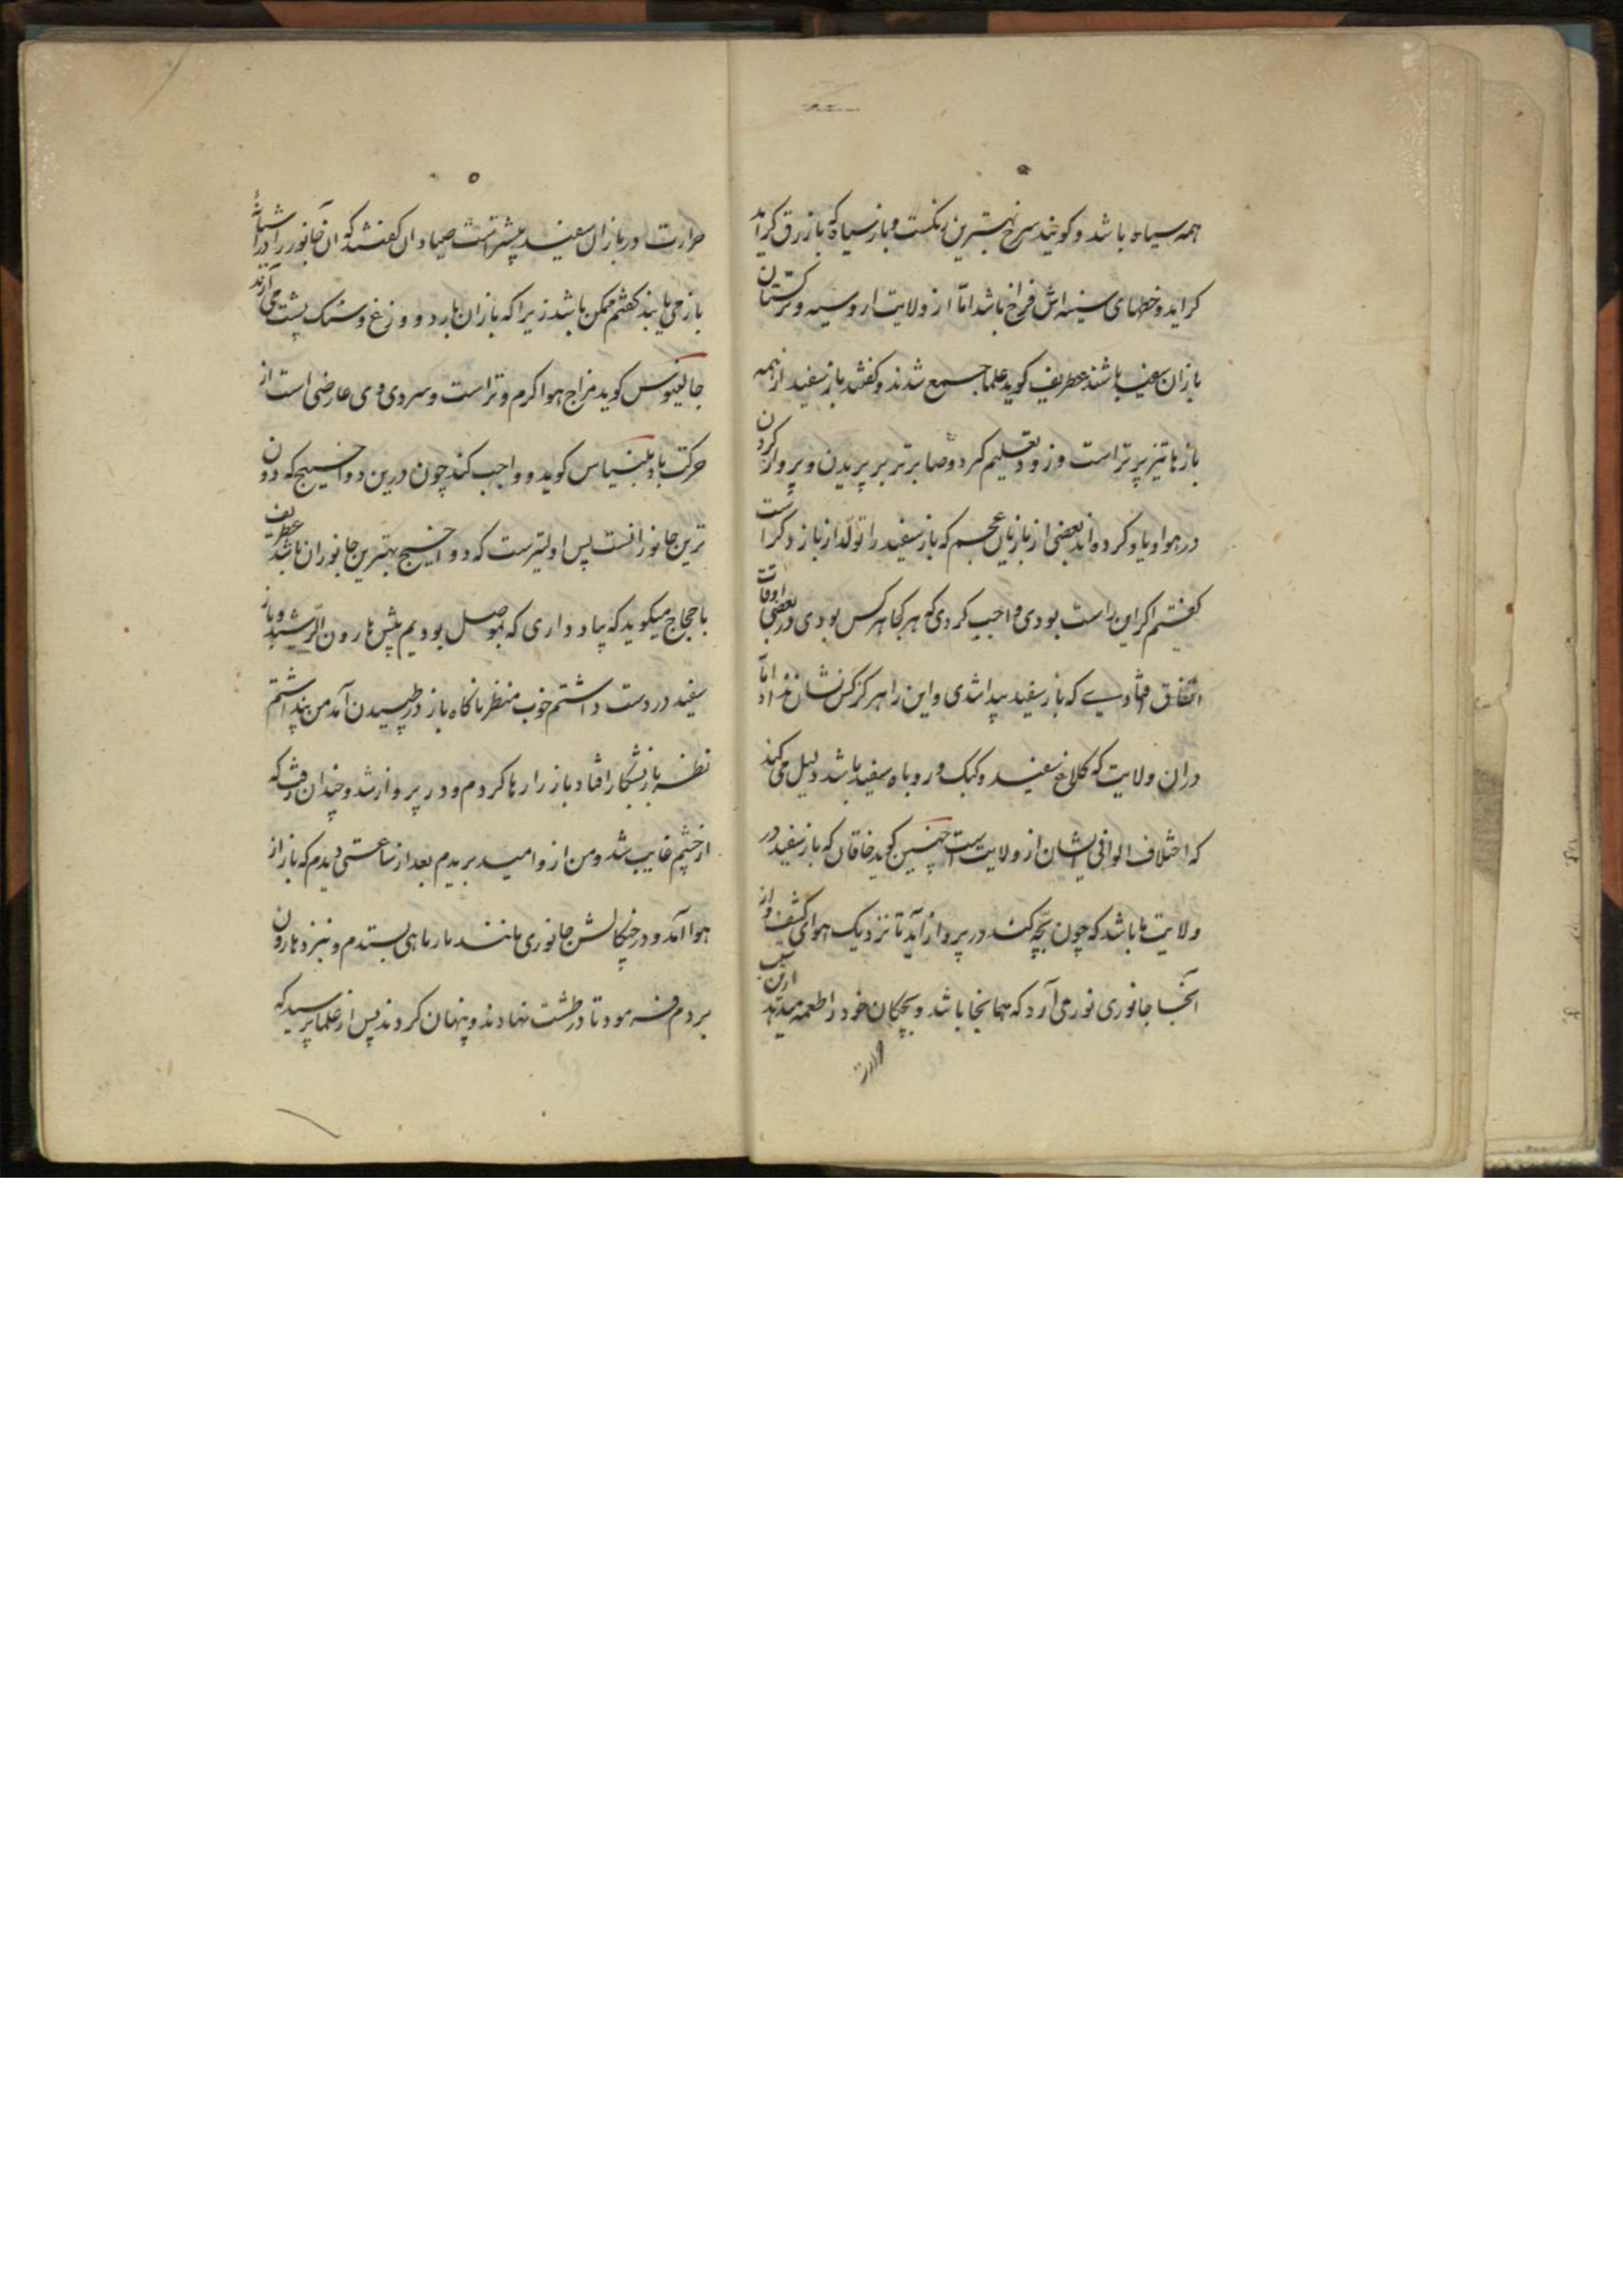 همه سیاه باشد و کویند سرخ بهترین رنکست و باز سیاه که بازرق کراید
کراید و خطهای سینه اش فراخ باشد اما از ولایت اروسیه و ترکستان
بازان سفید باشند عطریف کوید علما جمع شدند و کفتند باز سفید از همه
بازها تیز پرتر است و زود تعلیم کردد و صابرتر بر پریدن و پرواز کردن
در هوا و یاد کرده اند بعضی از بازیان عجم که باز سفید را تولد از باز دکر است
کفتم اکر این راست بودی واجب کردی که هر کجا هرکس بودی و در بعضی اوقات
اتفاق افتادی که باز سفید پیدا شدی و این را هرکز کس نشان نداد اما
دران ولایت که کلاغ سفید و کبک و روباه سفید باشد دلیل می کند
که اختلاف الوان ایشان از ولایت است چنین کوید خاقان که باز سفید در
ولایت ما باشد که چون بچه کند در پرواز آید تا نزدیک هوای کثیف و از
آنجا جانوری فرو می آرد که همانجا باشد و بچکان خود را طعمه میدهد ازین سبب
حرارت
حرارت در بازان سفید بیشتر است صیادان کفتند که آن جانور را در آشیانه
باز می یابند کفتم ممکن باشد زیرا که باران بارد و وزغ و سنک پشت می آرند
جالینوس کوید مزاج هوا کرم و تر است و سردی وی عارضی است از
حرکت باد بلنیاس کوید و واجب کند چون درین دو اخشیج که دون
ترین جانورانست پس اولیترست که دو اخشیج بهترین جانوران باشد عطریف
با حجاج میکوید که یاد داری که بموصل بودیم پیش هارون الرشید و باز
سفید در دست داشتم خوب منظر ناکاه باز در طپیدن آمد من پنداشتم
نظر باز بشکار افتاد باز را رها کردم و در پرواز شد و چندان رفت که
از چشم غایب شد و من از و امید بریدم بعد از ساعتی دیدم که باز از
هوا آمد و در چنکالش جانوری مانند مار ماهی بستدم و بنزد هارون
بردم فرمود تا در طشت نهادند و پنهان کردند پس از علما پرسید که